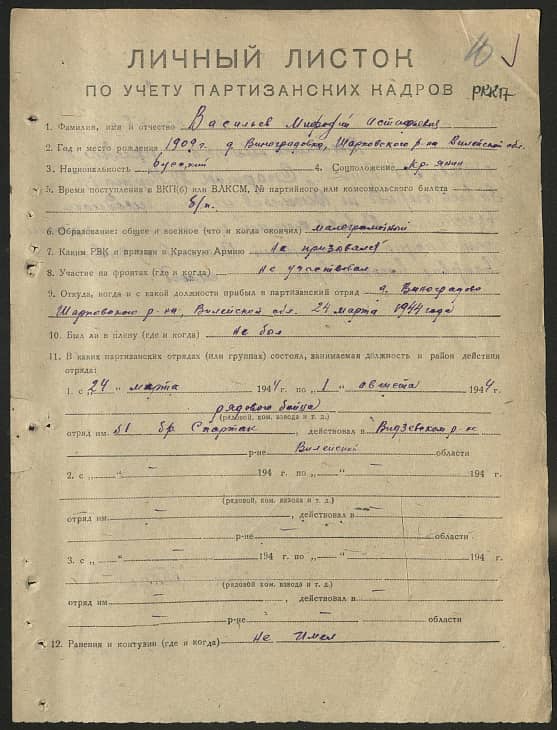 ЛИЧНЫЙ ЛИСТОК
ПО УЧЕТУ ПАРТИЗАНСКИХ КАДРОВ
РККП
1. Фамилия, имя и отчество Васильев Мифодий
2. Год и место рождения 1909 г. д. Виноградовка, Шарковского р-на Вилейской обл.
3. Национальность русский 4. Соцположение кр-янин
5. Время поступления в ВКП(б) или ВЛКСМ, № партийного или комсомольского билета
б/п.
6. Образование: общее и военное (что и когда окончил) малограмотный
7. Каким РВК и призван в Красную Армию Не призывался
8. Участие на фронтах (где и когда) Не участвовал
9. Откуда, когда и с какой должности прибыл в партизанский отряд д. Виноградово
Шарковского р-на, Вилейской обл. 24 марта 1944 года
10. Был ли в плену (где и когда) Не был
11. В каких партизанских отрядах (или группах) состоял, занимаемая должность и район действия
отряда:
1. с „24“ марта 1944 г. по „1“ августа 1944 г.
рядового бойца
(рядовой, ком. взвода и т. д.)
отряд им. бр. Спартак, действовал в Видзевском р-не
р-не Вилейской области
2. с „—“ 194 г. по „—“ 194 г.
(рядовой, ком. взвода и т. д.)
отряд им — , действовал в —
— р-не — области
3. с „—“ 194 г. по „—“ 194 г.
(рядовой ком. взвода и т. д.)
отряд им — , действовал в —
— р-не — области
12. Ранения и контузии (где и когда) Не имел